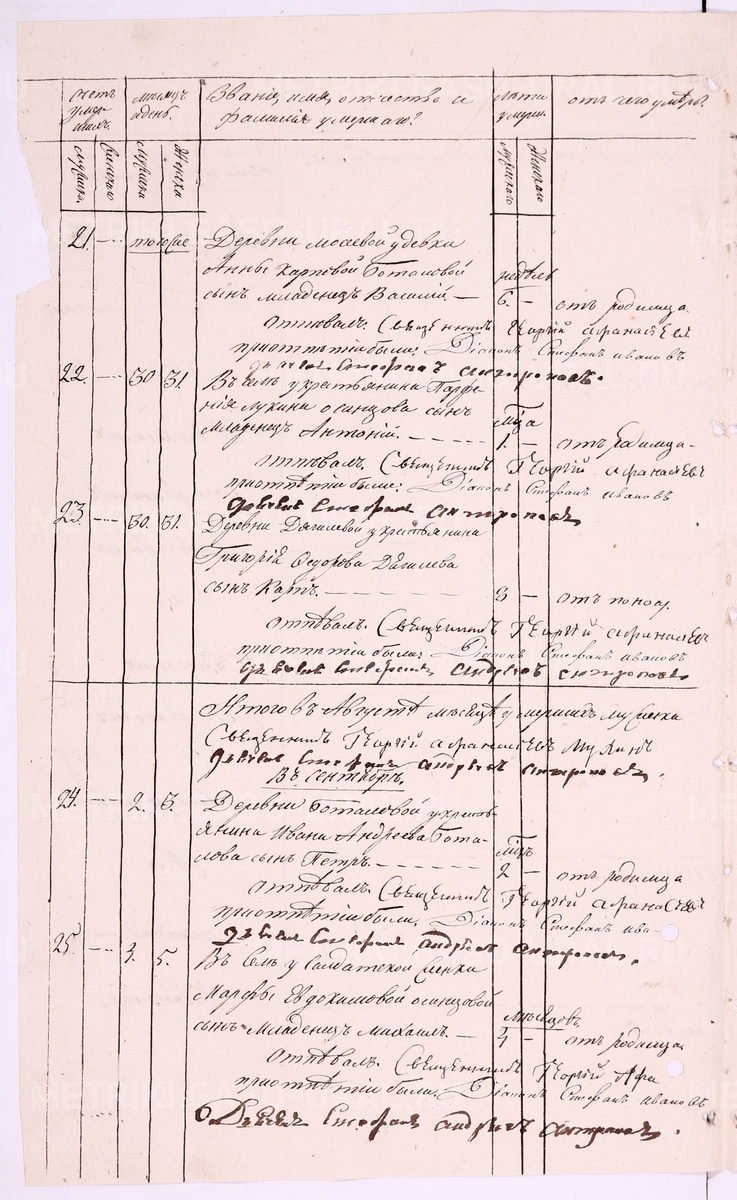 Счетъ умер шихъ. Мѣсяцъ и день. Званіе, имя, отчество и фамилія умершаго? Лѣта умерш. отъ чего умеръ?
мужска. женскаго мужска мужескаго Женскаго
21. --- тогоже Деревни Мосеевой у девки
Анны Карповой Боталовой недѣль
сынъ младенецъ Василій. — 6. — отъ родимца.
отпѣвалъ. Священникъ Георгій Афанасьевъ
приотпѣтіи были: Діаконъ Стефанъ Ивановъ
Стефанъ Антроповъ.
22. --- 30 31. Въ селѣ у крестьянина Парфе-
нія Лукина Осинцова сынъ мца
младенецъ Антоній. ----- 1. — отъ родимца-
отпѣвалъ. Священникъ Георгій Афанасьевъ
приотпѣтіи были: Діаконъ Стефанъ Ивановъ
Стефанъ Антроповъ
23. --- 30. 31. Деревни Дягилевой у крестьянина
Григорія Федорова Дягилева
сынъ Карпъ. ----- 3 — отъ поноса.
отпѣвалъ. Священникъ Георгій Афанасьевъ
приотпѣтіи были: Діаконъ Стефанъ Ивановъ
Андреевъ Антроповъ
Итого въ Августѣ мѣсяцѣ умершихъ
Священникъ Георгій Афанасьевъ
Стефанъ Андреевъ Антроповъ.
Въ сентябрѣ.
24. --- 2. 3. Деревни Боталовой у кресть-
янина Ивана Андреева Бота- мцъ
лова сынъ Петръ. ----- 2 — отъ родимца
отпѣвалъ. Священникъ Георгій Афанасьевъ
приотпѣтіи были. Діаконъ Стефанъ Ива-
Стефанъ Андреевъ Антроповъ.
25. --- 4. 5. Въ селѣ у солдатской женки
Марфы Евдокимовой Осинцовой мѣсяцовъ
сынъ младенецъ Михаилъ. — 4 — отъ родимца
отпѣвалъ. Священникъ Георгій Афа
приотпѣтіи были. Діаконъ Стефанъ Ивановъ
Стефанъ Андреевъ Антроповъ.